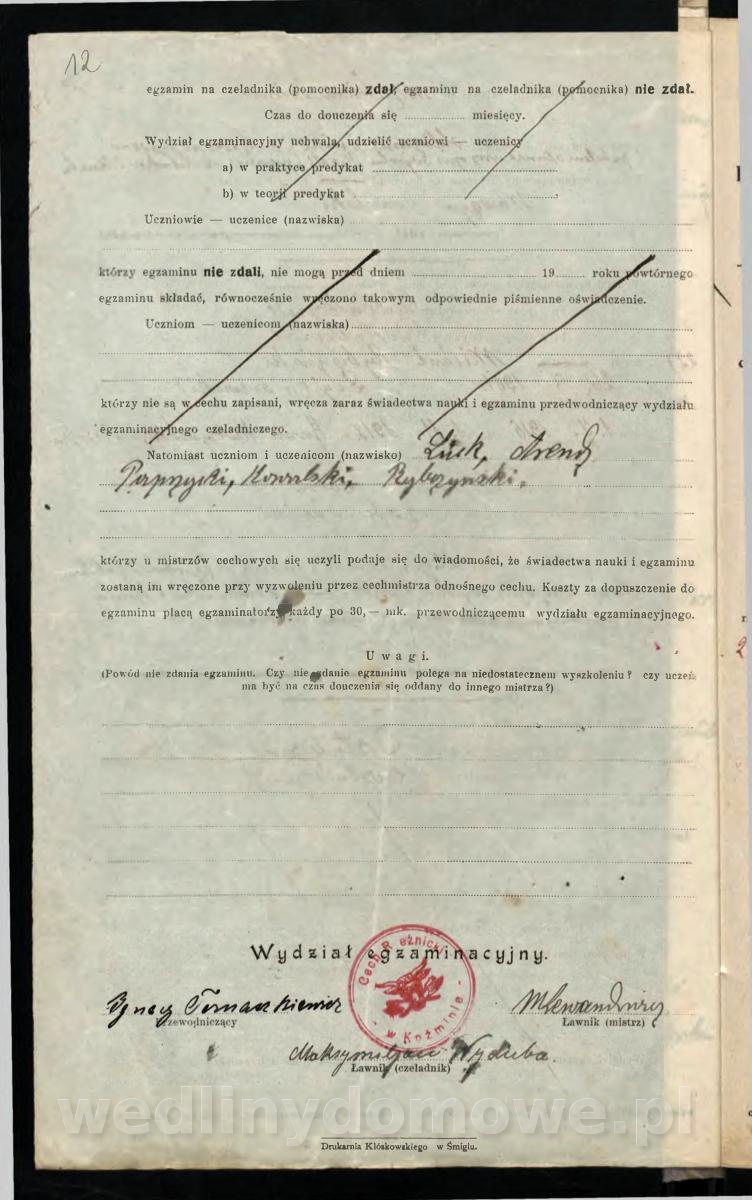 12
egzamin na czeladnika (pomocnika) zdał, egzaminu na czeladnika (pomocnika) nie zdał.
Czas do douczenia się .................. miesięcy.
Wydział egzaminacyjny uchwala, udzielić uczniowi — uczenicy
a) w praktyce predykat
b) w teorji predykat
Uczniowie — uczenice (nazwiska)
którzy egzaminu nie zdali, nie mogą przed dniem .................. 19........ roku powtórnego
egzaminu składać, równocześnie wręczono takowym odpowiednie piśmienne oświadczenie.
Uczniom — uczenicom (nazwiska)
którzy nie są w cechu zapisani, wręcza zaraz świadectwa nauki i egzaminu przedwodniczący wydziału
egzaminacyjnego czeladniczego.
Natomiast uczniom i uczenicom (nazwisko) Lück, Arendj
Kowalski, Rybczynski.
którzy u mistrzów cechowych się uczyli podaje się do wiadomości, że świadectwa nauki i egzaminu
zostaną im wręczone przy wyzwoleniu przez cechmistrza odnośnego cechu. Koszty za dopuszczenie do
egzaminu płacą egzaminatorzy każdy po 30,— mk. przewodniczącemu wydziału egzaminacyjnego.
Uwagi.
(Powód nie zdania egzaminu. Czy nie zdanie egzaminu polega na niedostatecznem wyszkoleniu? czy uczeń
ma być na czas douczenia się oddany do innego mistrza?)
Wydział egzaminacyjny.
Cech Rzeźnicki
w Koźminie
Ignacy Tomaszkiewicz
Przewodniczący
MLewandowicz
Ławnik (mistrz)
Maksymiljan Wyduba.
Ławnik (czeladnik)
wedlinydomowe.pl
Drukarnia Klóskowskiego w Śmiglu.